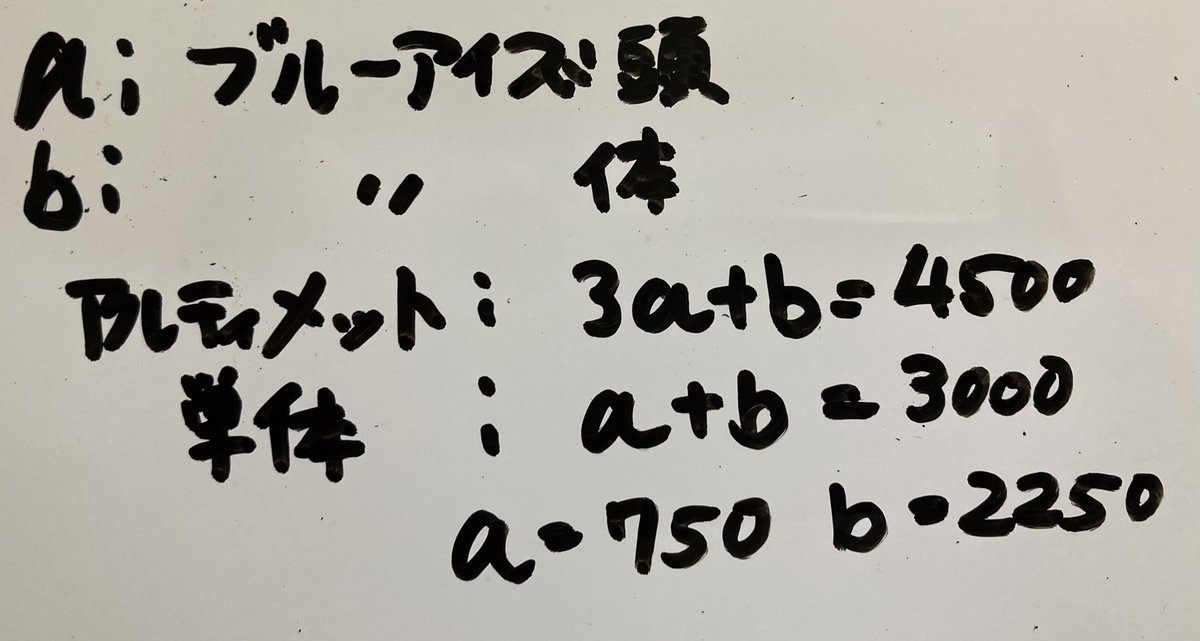 a: ブルーアイズ頭
b: 〃 体
アルティメット: 3a+b=4500
単体: a+b=3000
a=750 b=2250